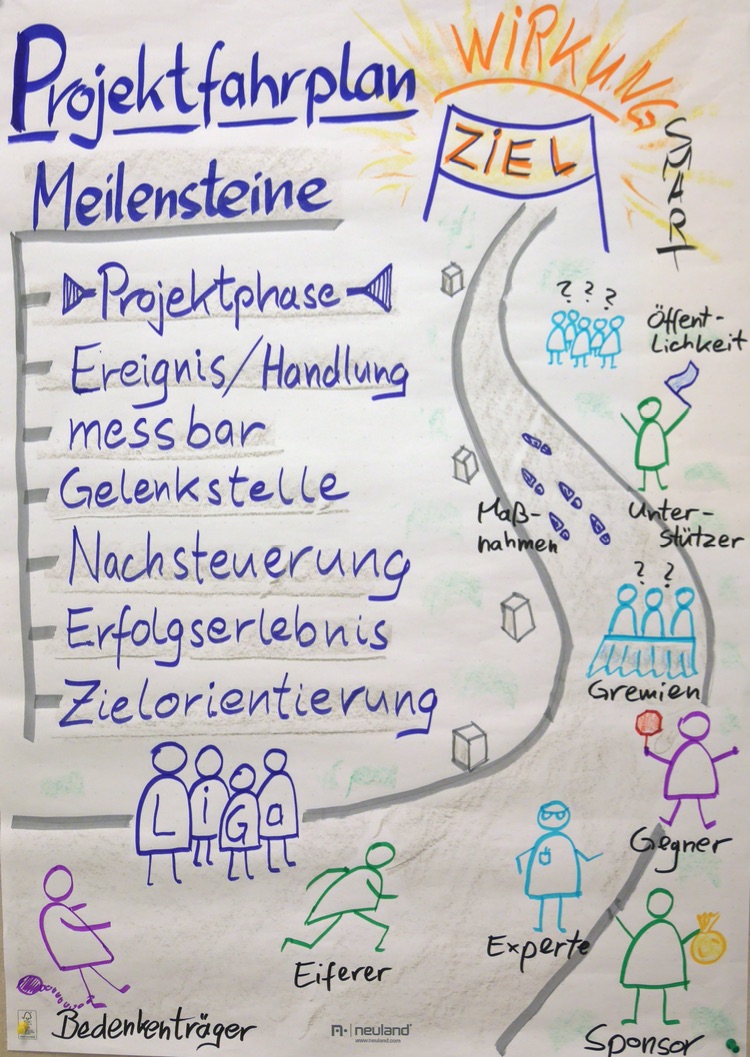 Projektfahrplan
WIRKUNG
ZIEL
SMART
Meilensteine
Projektphase
Ereignis/Handlung
messbar
Gelenkstelle
Nachsteuerung
Erfolgserlebnis
Zielorientierung
? ? ?
Öffent-
lichkeit
Maß-
nahmen
Unter-
stützer
? ?
Gremien
Gegner
L i G a
Experte
Eiferer
Bedenkenträger
Sponsor
neuland
www.neuland.com
FSC